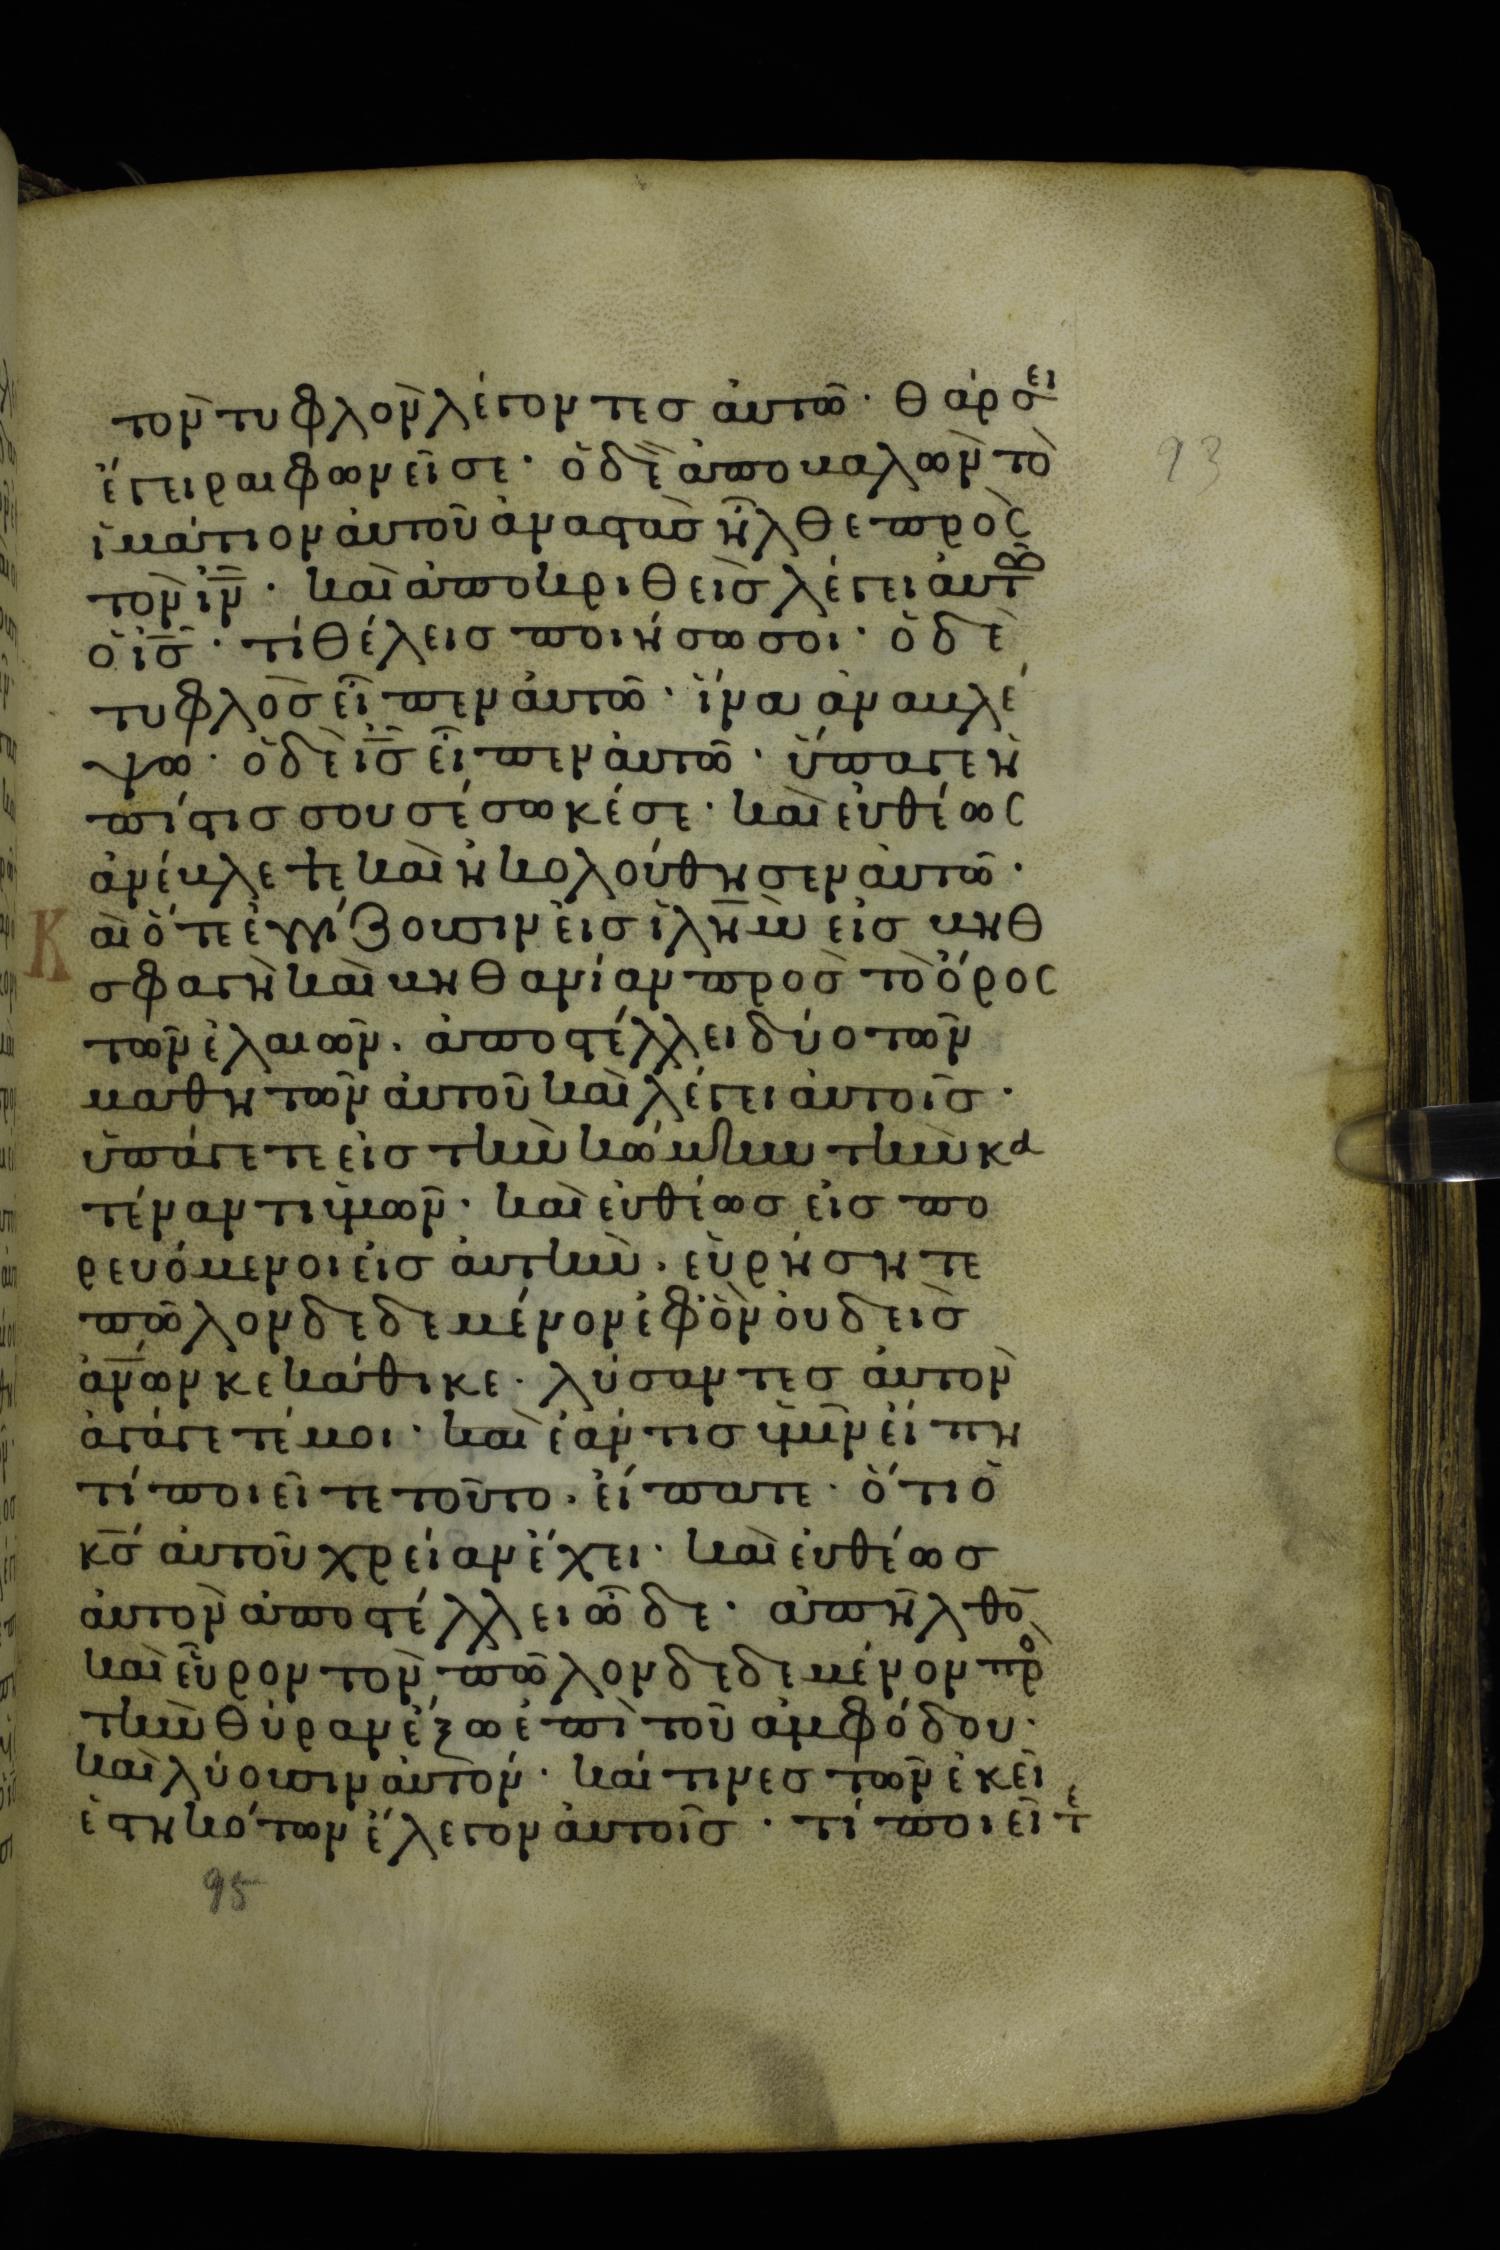 τον τυφλον λέγοντες αὐτῶ· θάρσει
93
ἔγειραι φωνεῖ σε· ὁ δὲ ἀποκαλὼν τὸ
ἱμάτιον αὐτοῦ ἀναστὰς ἦλθε πρὸς
τὸν ιν̅· καὶ ἀποκριθεὶς λέγει αὐτῶ
ὁ ις̅· τί θέλεις ποιήσω σοι· ὁ δὲ
τυφλὸς εἶπεν αὐτῶ· ἵνα ἀνακλέ
ψω· ὁ δὲ ις̅ εἶπεν αὐτῶ· ὕπαγε ἡ
πίστις σου σέσωκέ σε· καὶ εὐθέως
ἀνέκλεψε καὶ ἠκολούθησεν αὐτῶ·
Καὶ ὅτε ἐγγίζουσιν εἰς ἰλη̅μ εἰς κηθ
σφαγὴ καὶ κηθανίαν πρὸς τὸ ὄρος
τῶν ἐλαιῶν. ἀποστέλλει δύο τῶν
μαθητῶν αὐτοῦ καὶ λέγει αὐτοῖς·
ὑπάγετε εἰς τὴν κώμην τὴν κα
τέναντι ὑμῶν· καὶ εὐθέως εἰσπο
ρευόμενοι εἰς αὐτὴν. εὑρήσητε
πῶλον δεδεμένον ἐφ' ὃν οὐδεὶς
αν̅ων κεκάθικε. λύσαντες αὐτὸν
ἀγάγετέ μοι· καὶ ἐάν τις ὑμῖν εἴπη
τί ποιεῖτε τοῦτο. εἴπατε· ὅτι ὁ
κς̅ αὐτοῦ χρείαν ἔχει· καὶ εὐθέως
αὐτὸν ἀποστέλλει ὧδε· ἀπῆλθο̅
καὶ εὗρον τὸν πῶλον δεδεμένον πρὸ
τὴν θύραν ἔξω ἐπὶ τοῦ ἀμφόδου·
καὶ λύουσιν αὐτόν· καί τινες τῶν ἐκεῖ
ἑστηκότων ἔλεγον αὐτοῖς· τί ποιεῖτε
95